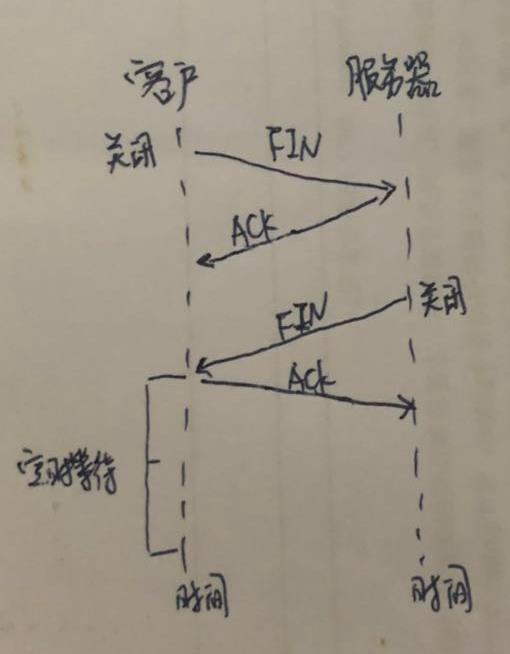 客户 服务器
关闭 FIN
ACK
关闭
FIN
ACK
定时等待
时间 时间